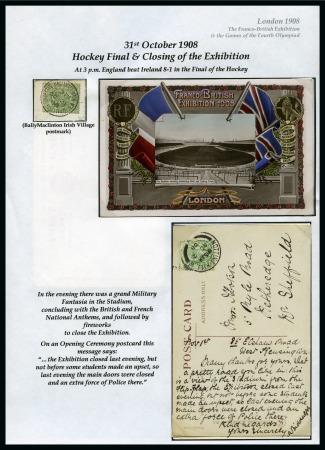 London 1908
The Franco-British Exhibition
& the Games of the Fourth Olympiad
31st October 1908
Hockey Final & Closing of the Exhibition
At 3 p.m. England beat Ireland 8-1 in the Final of the Hockey
(BallyMaclinton Irish Village
postmark)
FRANCO-BRITISH
EXHIBITION 1908
RF
LONDON
In the evening there was a grand Military
Fantasia in the Stadium,
concluding with the British and French
National Anthems, and followed by
fireworks
to close the Exhibition.
On an Opening Ceremony postcard this
message says:
"... the Exhibition closed last evening, but
not before some students made an upset, so
last evening the main doors were closed
and an extra force of Police there."
POST CARD
ADDRESS ONLY
Sheffield
West Kensington
Many thanks for yours, that
a pretty road you live in. This
is a view of the Stadium from the
Exhibition closed last
evening, but not before some students
made an upset, so last evening the
main doors were closed and an
extra force of Police there.
Kind regards
Yours Sincerely